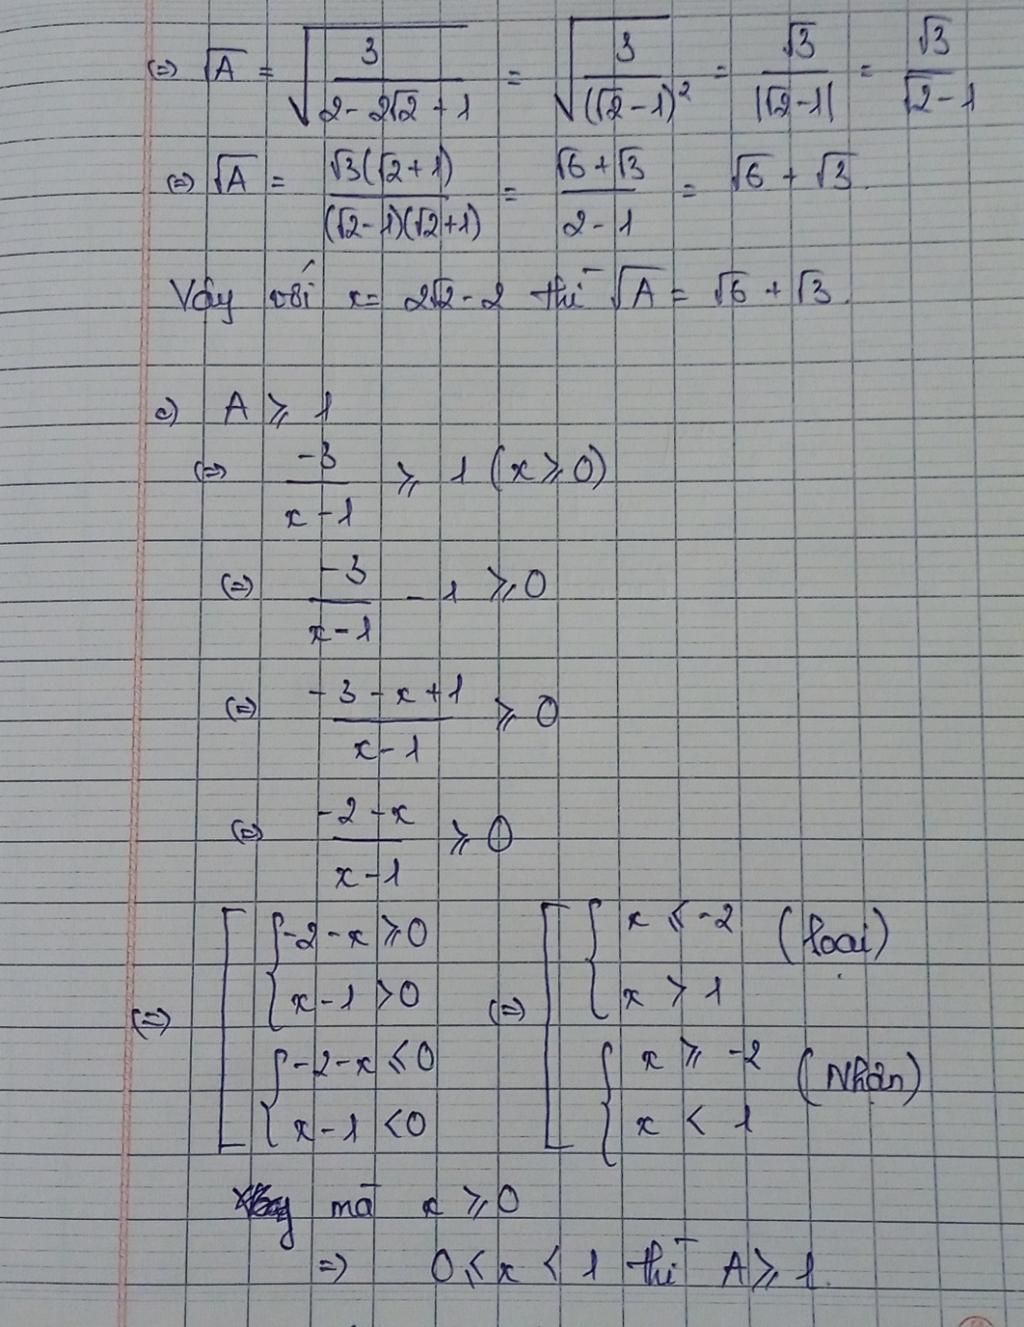 (=) √A = √(3/(2-2√2+1)) = √(3/(√2-1)²) = √3/|√2-1| = √3/(√2-1)
(=) √A = √3(√2+1)/((√2-1)(√2+1)) = (√6+√3)/(2-1) = √6 + √3.
Vậy với x = 2√2-2 thì √A = √6 + √3.
c) A ⩾ 1
(=) -3/(x-1) ⩾ 1 (x ⩾ 0)
(=) -3/(x-1) - 1 ⩾ 0
(=) (-3-x+1)/(x-1) ⩾ 0
(=) (-2-x)/(x-1) ⩾ 0
(=) [ { -2-x ⩾ 0 (=) [ { x ⩽ -2 (loại)
x-1 > 0 x > 1
{ -2-x ⩽ 0 { x ⩾ -2 (Nhận)
x-1 < 0 x < 1
mà x ⩾ 0
=) 0 ⩽ x < 1 thì A ⩾ 1.